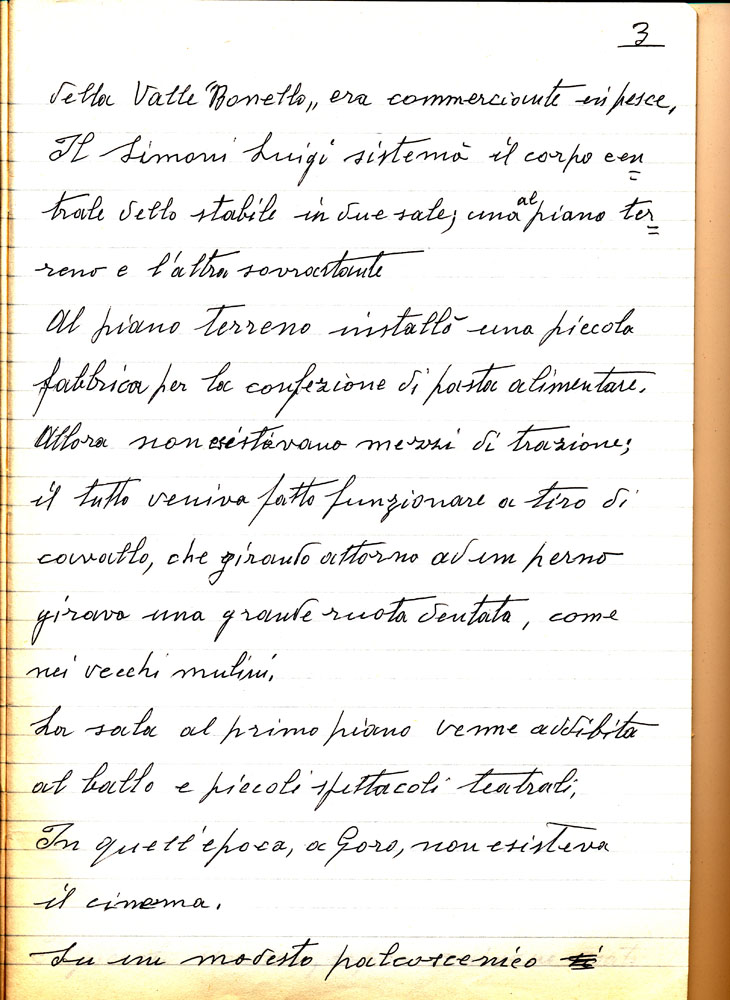 3
della Valle "Bonello„ era commerciante in pesce,
Il Simoni Luigi sistemò il corpo cen
trale dello stabile in due sale; una al piano ter
reno e l'altra sovrastante
Al piano terreno installò una piccola
fabbrica per la confezione di pasta alimentare.
Allora non esistevano mezzi di trazione;
il tutto veniva fatto funzionare a tiro di
cavallo, che girando attorno ad un perno
girava una grande ruota dentata, come
nei vecchi mulini.
La sala al primo piano venne addibita
al ballo e piccoli spettacoli teatrali,
In quell'epoca, a Goro, non esisteva
il cinema.
Su un modesto palcoscenico